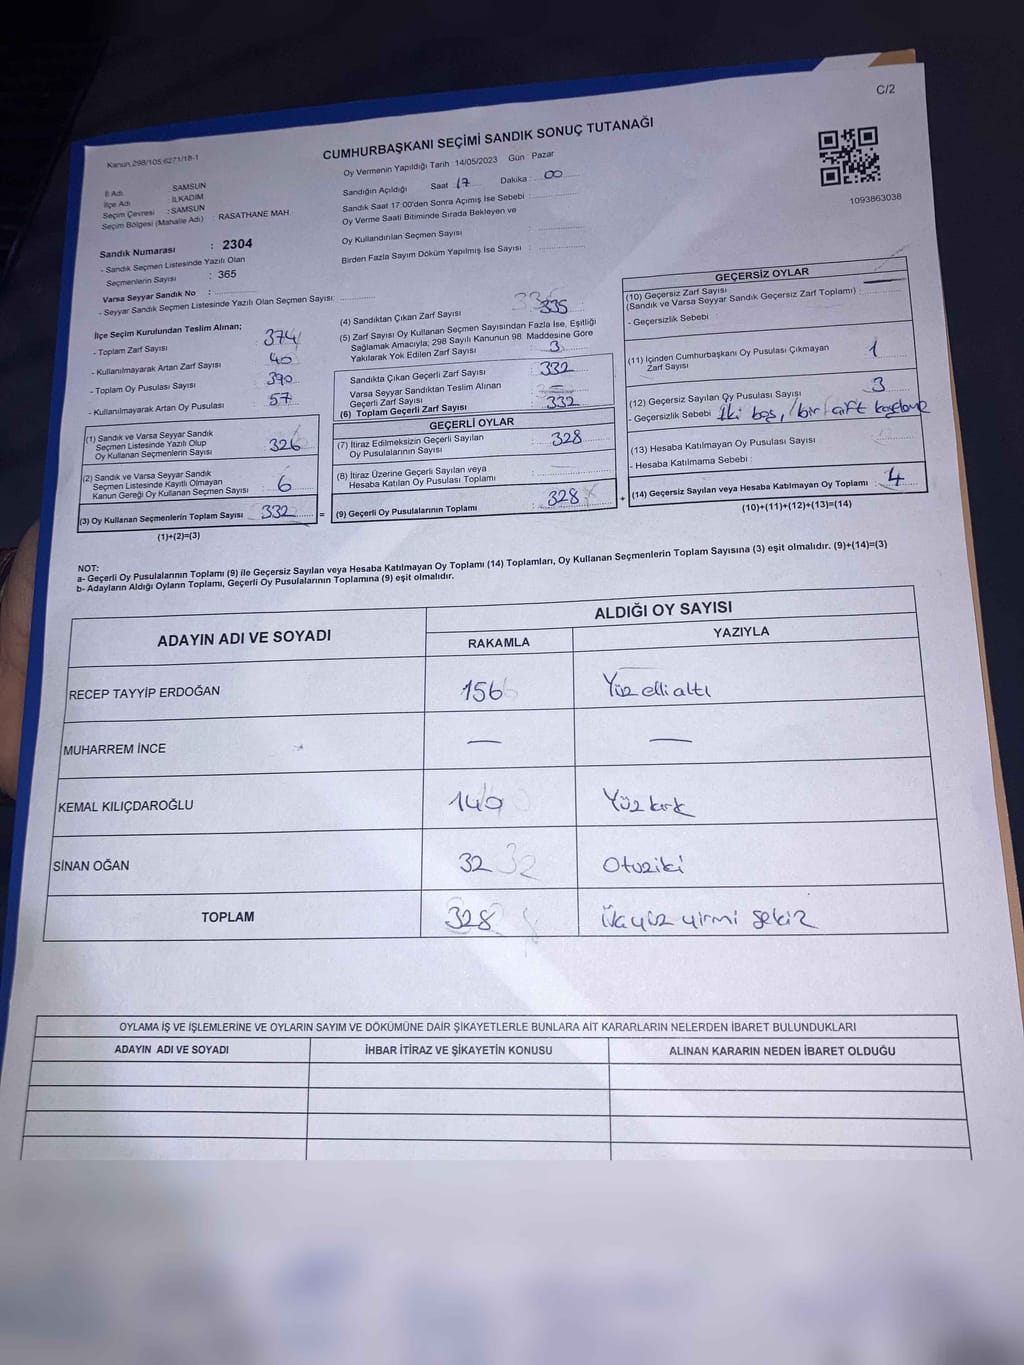 C/2
Kanun 298/105 6271/18-1
CUMHURBAŞKANI SEÇİMİ SANDIK SONUÇ TUTANAĞI
Oy Vermenin Yapıldığı Tarih 14/05/2023 Gün : Pazar
İl Adı : SAMSUN
İlçe Adı : İLKADIM
Seçim Çevresi : SAMSUN
Seçim Bölgesi (Mahalle Adı) : RASATHANE MAH.
Sandığın Açıldığı Saat 17 Dakika : 00
Sandık Saat 17:00'den Sonra Açımış İse Sebebi :
Oy Verme Saati Bitiminde Sırada Bekleyen ve
Oy Kullandırılan Seçmen Sayısı :
Birden Fazla Sayım Döküm Yapılmış İse Sayısı :
1093863038
Sandık Numarası : 2304
- Sandık Seçmen Listesinde Yazılı Olan
Seçmenlerin Sayısı : 365
Varsa Seyyar Sandık No :
- Seyyar Sandık Seçmen Listesinde Yazılı Olan Seçmen Sayısı:
İlçe Seçim Kurulundan Teslim Alınan;
- Toplam Zarf Sayısı : 374
- Kullanılmayarak Artan Zarf Sayısı : 40
- Toplam Oy Pusulası Sayısı : 390
- Kullanılmayarak Artan Oy Pusulası : 57
(1) Sandık ve Varsa Seyyar Sandık
Seçmen Listesinde Yazılı Olup
Oy Kullanan Seçmenlerin Sayısı : 326
(2) Sandık ve Varsa Seyyar Sandık
Seçmen Listesinde Kayıtlı Olmayan
Kanun Gereği Oy Kullanan Seçmen Sayısı : 6
(3) Oy Kullanan Seçmenlerin Toplam Sayısı : 332 =
(1)+(2)=(3)
(4) Sandıktan Çıkan Zarf Sayısı : 335
(5) Zarf Sayısı Oy Kullanan Seçmen Sayısından Fazla İse, Eşitliği
Sağlamak Amacıyla; 298 Sayılı Kanunun 98. Maddesine Göre
Yakılarak Yok Edilen Zarf Sayısı : 3
Sandıkta Çıkan Geçerli Zarf Sayısı : 332
Varsa Seyyar Sandıktan Teslim Alınan
Geçerli Zarf Sayısı : –
(6) Toplam Geçerli Zarf Sayısı : 332
GEÇERLİ OYLAR
(7) İtiraz Edilmeksizin Geçerli Sayılan
Oy Pusulalarının Sayısı : 328
(8) İtiraz Üzerine Geçerli Sayılan veya
Hesaba Katılan Oy Pusulası Toplamı :
(9) Geçerli Oy Pusulalarının Toplamı : 328 +
GEÇERSİZ OYLAR
(10) Geçersiz Zarf Sayısı
(Sandık ve Varsa Seyyar Sandık Geçersiz Zarf Toplamı) : —
- Geçersizlik Sebebi :
(11) İçinden Cumhurbaşkanı Oy Pusulası Çıkmayan
Zarf Sayısı : 1
(12) Geçersiz Sayılan Oy Pusulası Sayısı : 3
- Geçersizlik Sebebi : İki boş, bir çift
(13) Hesaba Katılmayan Oy Pusulası Sayısı
- Hesaba Katılmama Sebebi :
(14) Geçersiz Sayılan veya Hesaba Katılmayan Oy Toplamı : 4
(10)+(11)+(12)+(13)=(14)
NOT:
a- Geçerli Oy Pusulalarının Toplamı (9) ile Geçersiz Sayılan veya Hesaba Katılmayan Oy Toplamı (14) Toplamları, Oy Kullanan Seçmenlerin Toplam Sayısına (3) eşit olmalıdır. (9)+(14)=(3)
b- Adayların Aldığı Oyların Toplamı, Geçerli Oy Pusulalarının Toplamına (9) eşit olmalıdır.
ADAYIN ADI VE SOYADI
ALDIĞI OY SAYISI
RAKAMLA YAZIYLA
RECEP TAYYİP ERDOĞAN 156 Yüz elli altı
MUHARREM İNCE — —
KEMAL KILIÇDAROĞLU 140 Yüz kırk
SİNAN OĞAN 32 Otuziki
TOPLAM 328 Üçyüz yirmi sekiz
OYLAMA İŞ VE İŞLEMLERİNE VE OYLARIN SAYIM VE DÖKÜMÜNE DAİR ŞİKAYETLERLE BUNLARA AİT KARARLARIN NELERDEN İBARET BULUNDUKLARI
ADAYIN ADI VE SOYADI İHBAR İTİRAZ VE ŞİKAYETİN KONUSU ALINAN KARARIN NEDEN İBARET OLDUĞU